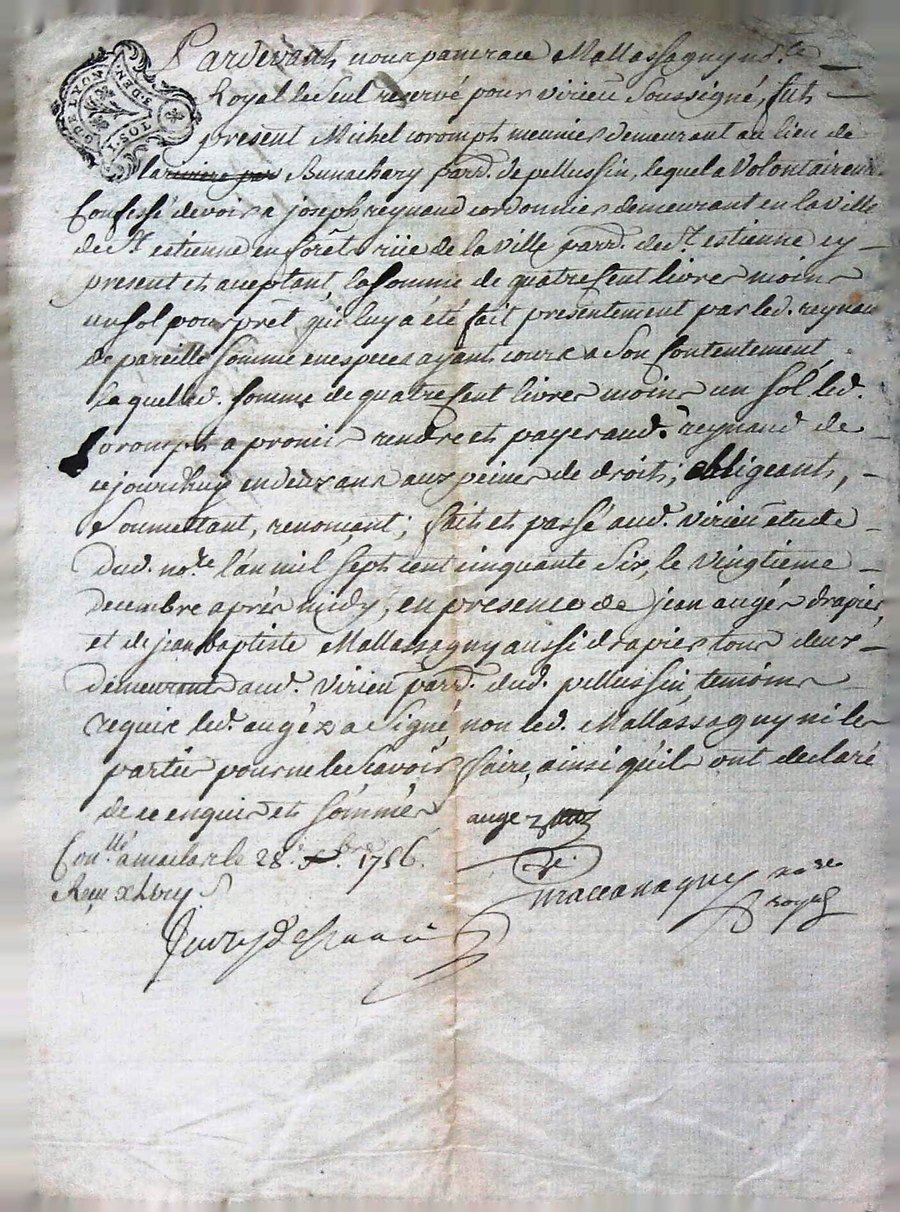 GDE LYON
1 SOL
3 DEN
Pardevant nous pancrace Mallassagny no.re
Royal le seul reservé pour virieu soussigné, fut
present Michel coromph meunier demeurant au lieu de
lariviere par Bunachary parr. de pellussin, lequel a volontairem.
Confessé devoir a joseph reynaud cordonnier demeurant en la ville
de St. estienne en forêt rüe de la ville parr. de St. estienne cy
present et aceptant la somme de quatre Cent livres moins
un sol pour prêt qui luy a été fait presentement par led. reynau
de pareille somme en especes ayant cours a son Contentement
laquelled. somme de quatre Cent livres moins un sol led.
coromph a promis rendre et payer aud. reynaud de
cejourdhuy en deux ans aux peines de droit; obligeant,
Soumettant, renonçant; fait et passé aud. virieu étude
dud. no.re l'an mil sept cent cinquante six, le vingtieme
decembre aprés midy, en presence de jean augér drapier
et de jean baptiste Mallassagny aussi drapier tous deux
demeurant aud. virieu parr. dud. pellussin temoins
requis led. augéz a signé non led. Mallassagny ni les
parties pour ne le scavoir faire, ainsi qu'ils ont declaré
de ce enquis et sommés
augez
Con.llé a maclas le 28.e x.bre 1756.
Reçu
no.re
royal